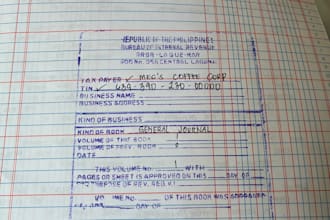 REPUBLIC OF THE PHILIPPINES
BUREAU OF INTERNAL REVENUE
TAX PAYER MEG'S COFFEE CORP
TIN 639-390-230-00000
BUSINESS NAME
BUSINESS ADDRESS
KIND OF BUSINESS
KIND OF BOOK GENERAL JOURNAL
VOLUME OF THIS BOOK 1
VOLUME OF PREV. BOOK
DATE
THIS VOLUME NO. 1 WITH
PAGES OR SHEET IS APPROVED ON THIS DAY OF
OF THIS BOOK WAS
DAY OF